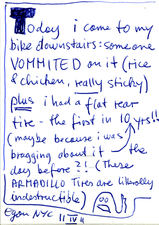 Today i come to my
bike downstairs: someone
VOMMITED on it (rice
& chicken, really sticky)
plus i had a flat rear
tire - the first in 10 yrs!!
(maybe because i was
bragging about it the
day before?! (These
ARMADILLO Tires are literally
indestructible)
Egon NYC 11 IV 11